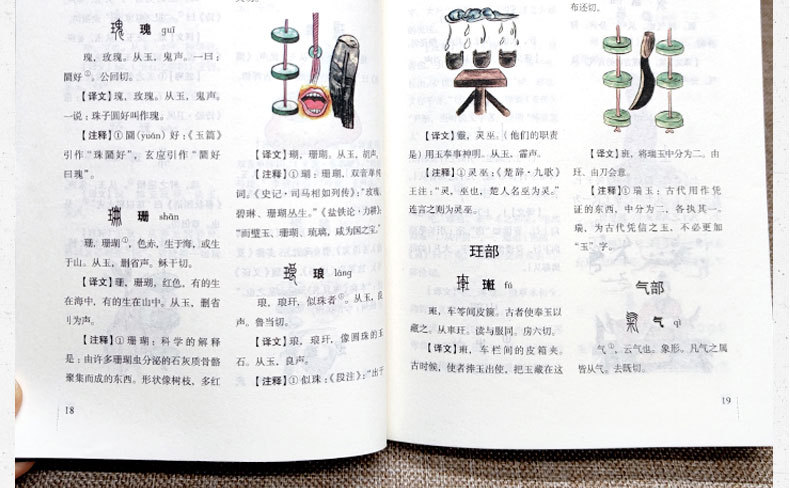 瑰 瑰 guī
瑰，玫瑰。从玉，鬼声。一曰：
圜好①。公回切。
【译文】瑰，玫瑰。从玉，鬼声。
一说：珠子圆好叫作瑰。
【注释】①圜(yuán)好：《玉篇》
引作“珠圜好”，玄应引作“圜好
曰瑰”。
珊 珊 shān
珊，珊瑚①，色赤，生于海，或生
于山。从玉，删省声。稣干切。
【译文】珊，珊瑚，红色，有的生
在海中，有的生在山中。从玉，删省
刂为声。
【注释】①珊瑚：科学的解释
是：由许多珊瑚虫分泌的石灰质骨骼
聚集而成的东西。形状像树枝，多红
18
【译文】瑚，珊瑚。从玉，胡声。
【注释】①瑚：珊瑚，双音单纯
词。《史记·司马相如列传》：“玫瑰、
碧琳、珊瑚丛生。”《盐铁论·力耕》：
“而璧玉、珊瑚、琉璃，咸为国之宝。”
琅 琅 láng
琅，琅玕，似珠者①。从玉，良
声。鲁当切。
【译文】琅，琅玕，像圆珠的玉
石。从玉，良声。
【注释】①似珠：《段注》：“出于
【译文】靈，灵巫。(他们的职责
是)用玉奉事神明。从玉，霝声。
【注释】①灵巫：《楚辞·九歌》
王注：“灵，巫也，楚人名巫为灵。”
连言之则为灵巫。
玨部
fú
车笭间皮箧。古者使奉玉以
藏之。从車玨。读与服同。房六切。
车栏间的皮箱夹。
古时候，使者捧玉出使，把玉藏在这
布还切。
【译文】班，将瑞玉中分为二。由
玨、由刀会意。
【注释】①瑞玉：古代用作凭
证的东西，中分为二，各执其一。
瑞，为古代凭信之玉，不必更加
“玉”字。
气部
气 气 qì
气①，云气也。象形。凡气之属
皆从气。去既切。
19